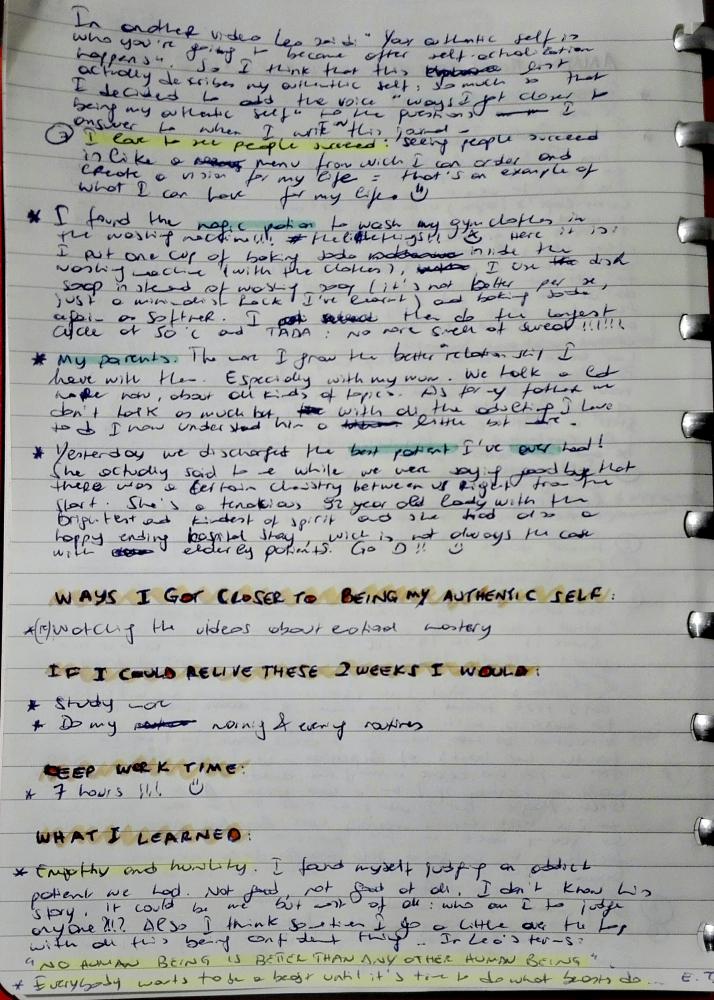 In another video Leo said: "Your authentic self is
who you're going to become after self-actualization
happens". So I think that this list
actually describes my authentic self, so much so that
I decided to add the voice "ways I got closer to
being my authentic self" to the questions I
answer to when I write this journal.
7 I love to see people succeed: seeing people succeed
is like a menu from wich I can order and
create a vision for my life = that's an example of
what I can have for my life. ☺
* I found the magic potion to wash my gym clothes in
the washing machine!!! #thelittlethings!!! Here it is:
I put one cup of baking soda inside the
washing machine (with the clothes), I use dish
soap instead of washing soap (it's not better per se,
just a minimalist hack I've learnt) and baking soda
again as softner. I then do the longest
cycle at 50°c and TADA: no more smell of sweat!!!!!!
* My parents. The more I grow the better relationship I
have with them. Especially with my mum. We talk a lot
more now, about all kinds of topics. As for my father we
don't talk as much but, with all the adulting I have
to do I now understand him a little bit more.
* Yesterday we discharged the best patient I've ever had!
She actually said to me while we were saying goodbye that
there was a certain chemistry between us right from the
start. She's a tenacious 92 year old lady with the
brightest and kindest of spirit and she had also a
happy ending hospital stay, wich is not always the case
with elderly patients. Go D!! ☺
WAYS I GOT CLOSER TO BEING MY AUTHENTIC SELF:
* (re)watching the videos about emotional mastery
IF I COULD RELIVE THESE 2 WEEKS I WOULD:
* Study more
* Do my morning & evening routines
DEEP WORK TIME:
* 7 hours !!! ☺
WHAT I LEARNED:
* Empathy and humility. I found myself judging an addict
patient we had. Not good, not good at all. I don't know his
story, it could be me but most of all: who am I to judge
anyone?!!? Also I think sometimes I go a little over the top
with all this being confident thing... In Leo's terms:
"NO HUMAN BEING IS BETTER THAN ANY OTHER HUMAN BEING".
* Everybody wants to be a beast until it's time to do what beasts do... E.T